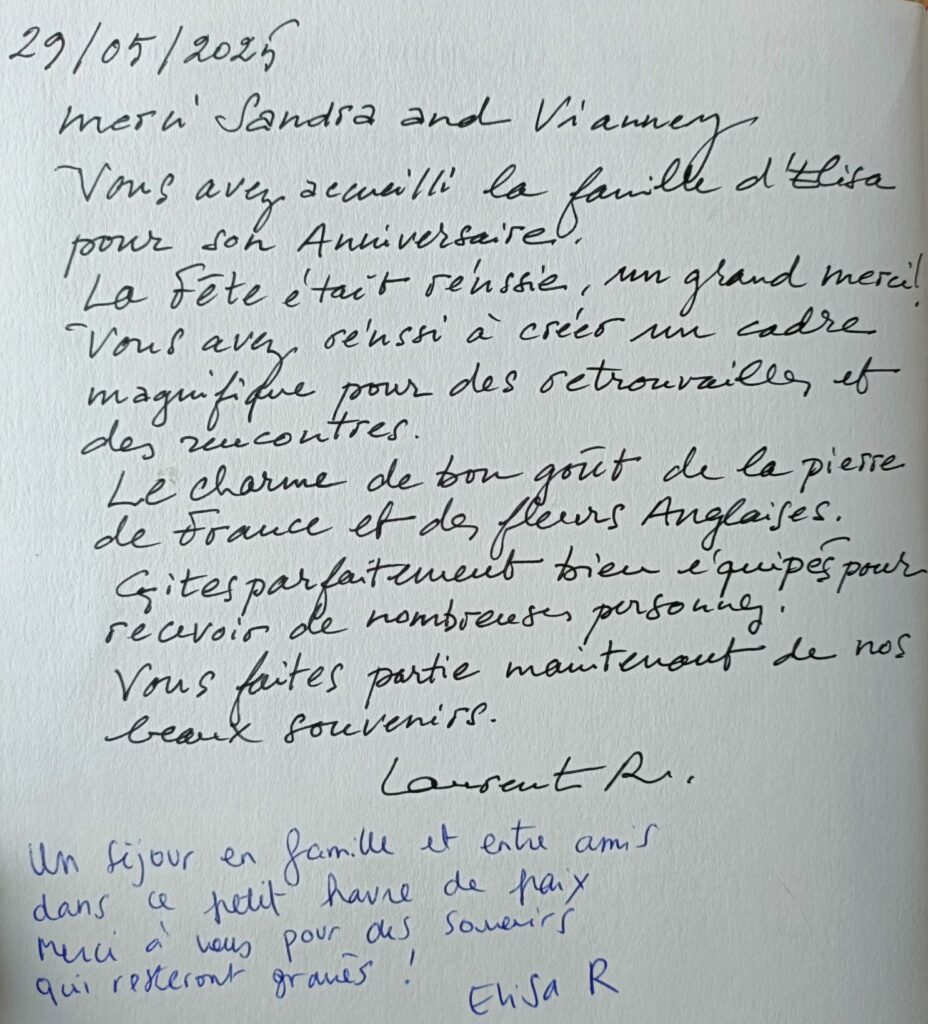 29/05/2025
merci Sandra and Vianney
Vous avez accueilli la famille d'Elisa
pour son Anniversaire.
La Fête était réussie, un grand merci!
Vous avez réussi à créer un cadre
magnifique pour des retrouvailles et
des rencontres.
Le charme de bon goût de la pierre
de France et des fleurs Anglaises.
Gites parfaitement bien équipés pour
recevoir de nombreuses personnes.
Vous faites partie maintenant de nos
beaux souvenirs.
Laurent R.
Un séjour en famille et entre amis
dans ce petit havre de paix
Merci à vous pour des souvenirs
qui resteront gravés !
Elisa R